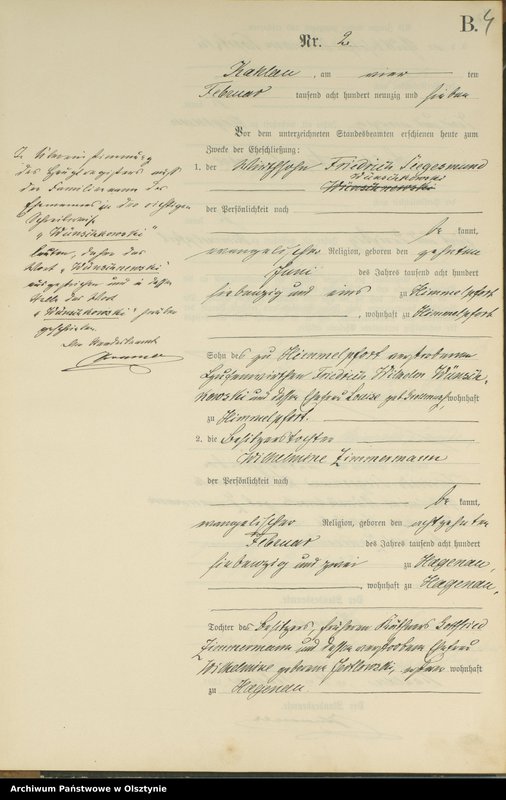 B. 4
Nr. 2
Kahlau, am vier ten
Februar tausend acht hundert neunzig und sieben
Vor dem unterzeichneten Standesbeamten erschienen heute zum
Zwecke der Eheschließung:
1. der Wirthssohn Friedrich Siegesmund
Wünsikowski
der Persönlichkeit nach
be kannt,
evangelischer Religion, geboren den zehnten
Juni des Jahres tausend acht hundert
siebenzig und eins zu Himmelpfort
, wohnhaft zu Himmelpfort
Sohn des zu Himmelpfort verstorbenen
Friedrich Wilhelm Wünsi-
kowski und dessen Ehefrau Louise wohnhaft
zu Himmelpfort.
2. die Besitzerstochter
Wilhelmine Zimmermann
der Persönlichkeit nach
be kannt,
evangelischer Religion, geboren den achtzehnten
Februar des Jahres tausend acht hundert
siebenzig und zwei zu Hagenau,
, wohnhaft zu Hagenau,
Tochter des Besitzers, früheren Käthners Gottfried
Zimmermann und dessen verstorbene Ehefrau
Wilhelmine geborene wohnhaft
zu Hagenau.
In Übereinstimmung
des Hauptregisters muß
der Familienname des
Ehemannes in der richtigen
Schreibweise
"Wünsikowski"
lauten, daher das
Wort
ausgestrichen und in dessen
Stelle das Wort
"Wünsikowski"
geschrieben.
Der Standesbeamte
Archiwum Państwowe w Olsztynie